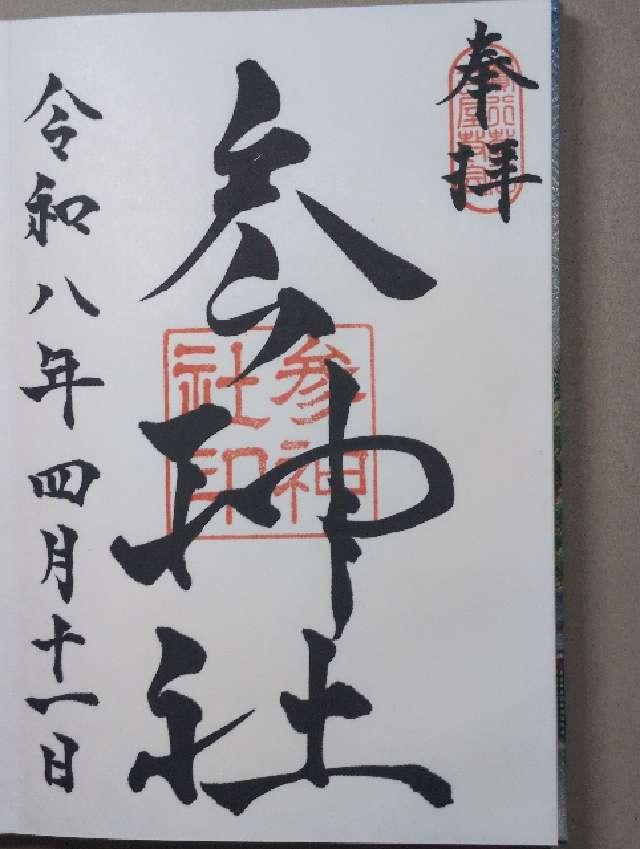 奉拝
参神社
参神社印
令和八年四月十一日